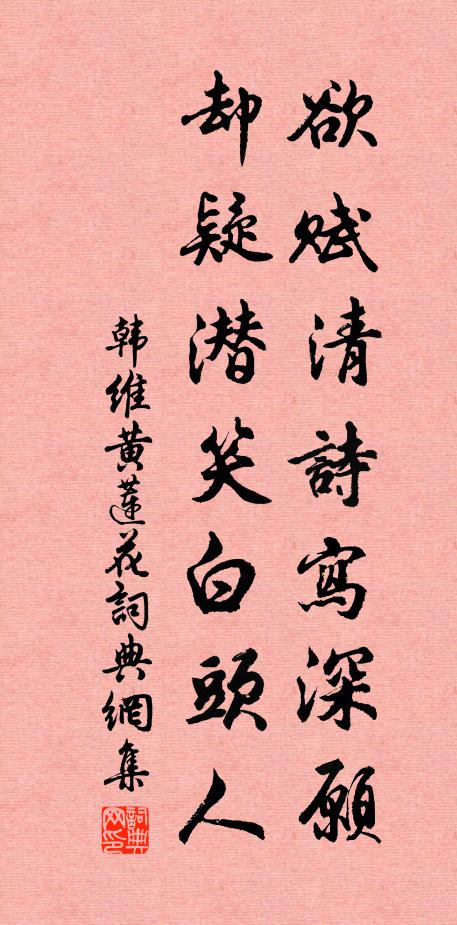 欲赋清詩寫深願
却疑潜笑白頭人
韩维黄莲花詞典網集
詞典网印